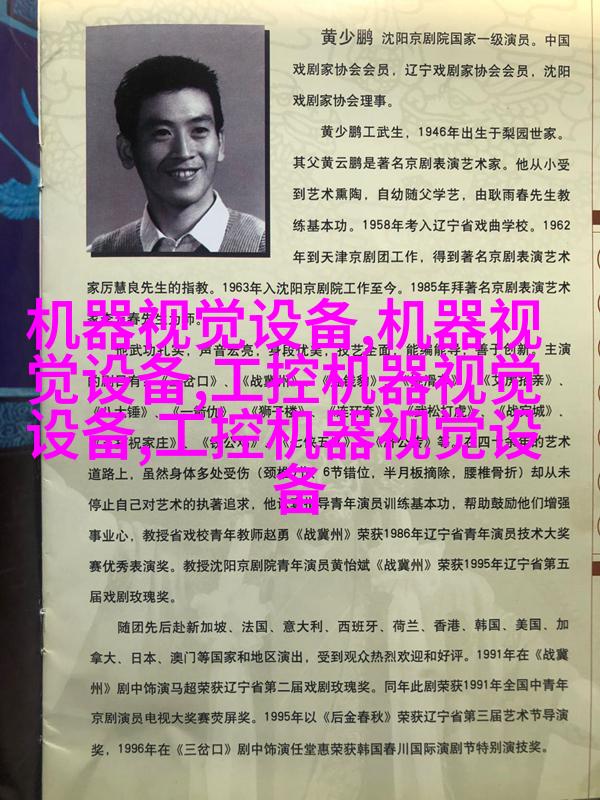 黄少鹏 沈阳京剧院国家一级演员。中国
戏剧家协会会员，辽宁戏剧家协会会员，沈阳
戏剧家协会理事。
黄少鹏工武生，1946年出生于梨园世家。
其父黄云鹏是著名京剧表演艺术家。他从小受
到艺术熏陶，自幼随父学艺，由耿雨春先生教
练基本功。1958年考入辽宁省戏曲学校。1962
年到天津京剧团工作，得到著名京剧表演艺术
家厉慧良先生的指教。1963年入沈阳京剧院工作至今。1985年拜著名京剧表演艺术
春先生为师。
机器视觉设备,机器视
觉设备,工控机器视觉
设备,工控机器视觉设
备
他武功扎实，声音宏亮，身段优美，技艺全面，能编能导，善于创新。主演
的剧目有：《三岔口》、《战冀州》、
《八大锤》、《一箭仇》、《狮子楼》、《连环套》、《武松打虎》、《战宛城》、
祝家庄》、
等。在四十余年的艺术
道路上，虽然身体多处受伤（颈椎、6节错位，半月板摘除，腰椎骨折）却从未
停止自己对艺术的执著追求，他认真指导青年演员训练基本功，帮助鼓励他们增强
事业心，教授省戏校青年教师赵勇《战冀州》荣获1986年辽宁省青年演员技术大奖
赛优秀表演奖。教授沈阳京剧院青年演员黄怡斌《战冀州》荣获1995年辽宁省第五
届戏剧玫瑰奖。
随团先后赴新加坡、法国、意大利、西班牙、荷兰、香港、韩国、美国、加
拿大、日本、澳门等国家和地区演出，受到观众热烈欢迎和好评。1991年在《战冀
州》剧中饰演马超荣获辽宁省第二届戏剧玫瑰奖。同年此剧荣获1991年全国中青年
京剧演员电视大奖赛荧屏奖。1995年以《后金春秋》荣获辽宁省第三届艺术节导演
奖，1996年在《三岔口》剧中饰演任堂惠荣获韩国春川国际演剧节特别演技奖。